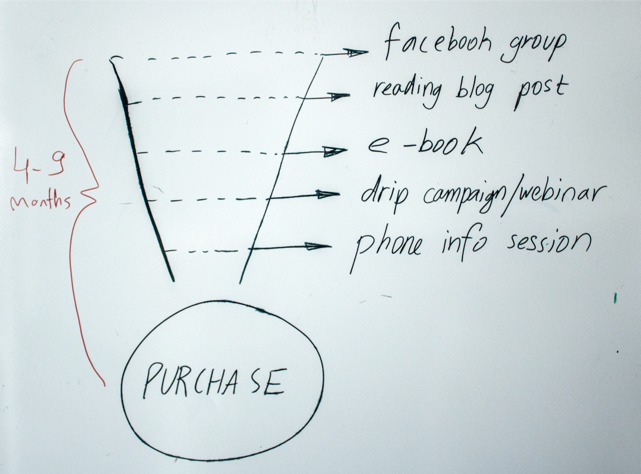 facebook group
reading blog post
e-book
drip campaign/webinar
phone info session
4-9
months
PURCHASE